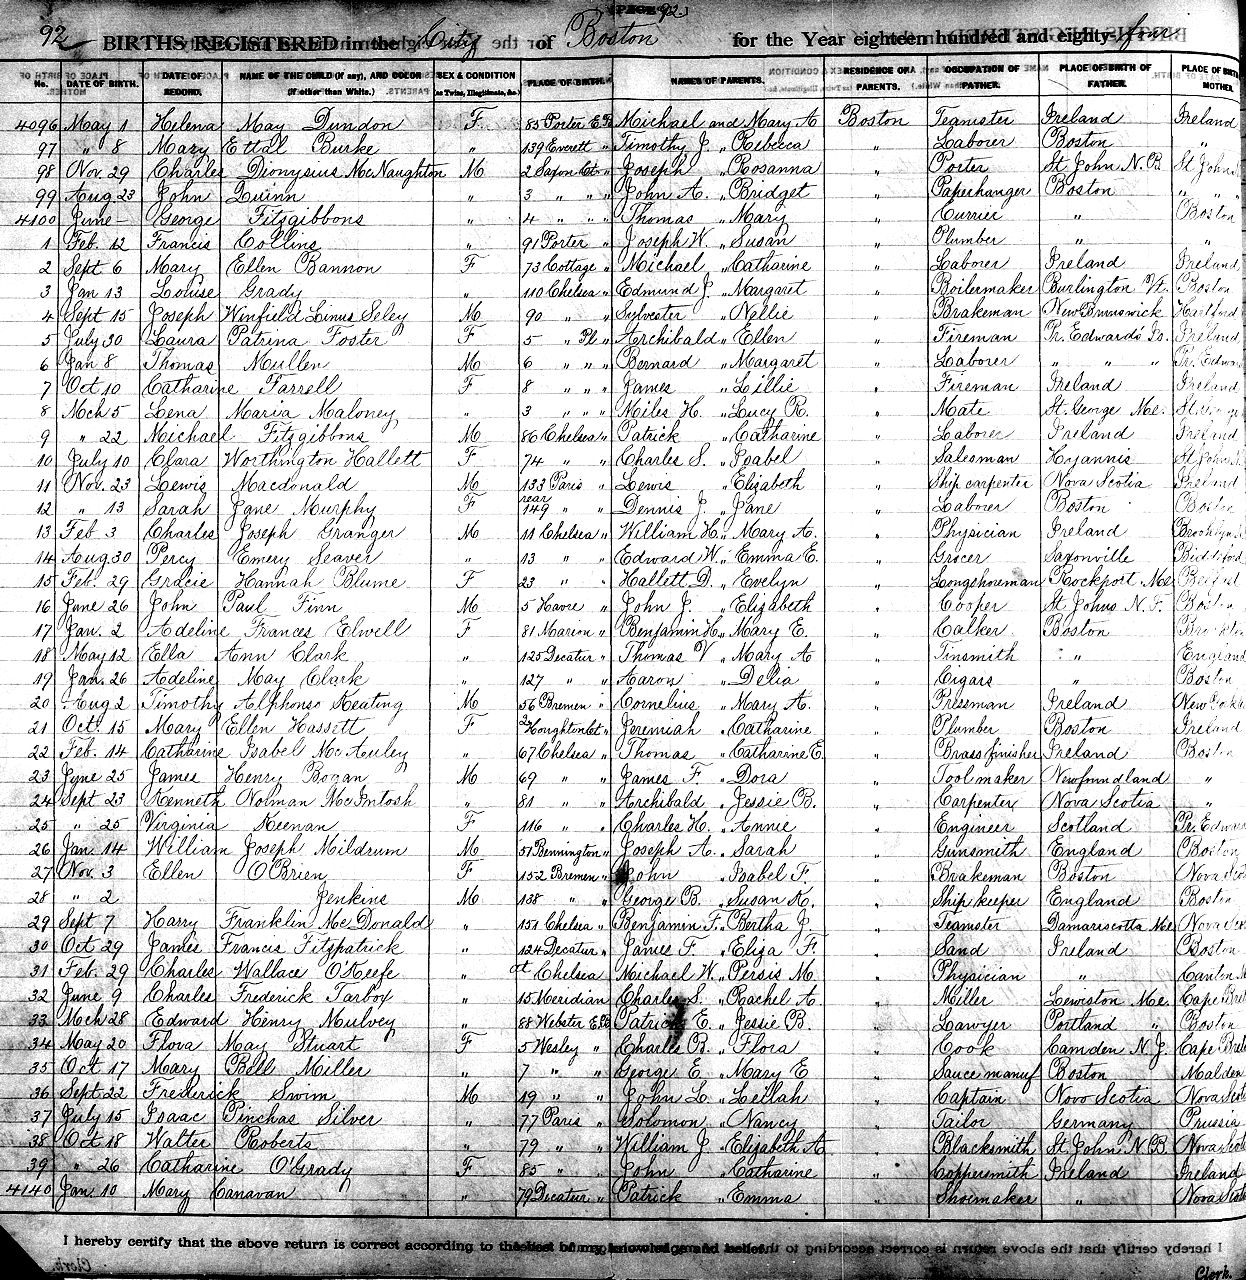 92
92 BIRTHS REGISTERED in the City of Boston for the Year eighteen hundred and eighty-five
No. DATE OF BIRTH. DATE OF RECORD. NAME OF THE CHILD (if any), AND COLOR (if other than White.) SEX & CONDITION (as Twins, Illegitimate, &c.) PLACE OF BIRTH. NAMES OF PARENTS. RESIDENCE OF PARENTS. OCCUPATION OF FATHER. PLACE OF BIRTH OF FATHER. PLACE OF BIRTH OF MOTHER.
4096 May 1 Helena May Dundon F 85 Porter E.B. Michael and Mary A Boston Teamster Ireland Ireland
97 " 8 Mary Ettal Burke " 139 Everett " Timothy J. " Rebecca " Laborer Boston "
98 Nov. 29 Charles Dionysius McNaughton M 2 Saxon Ct. " Joseph " Rosanna " Porter St John N.B. St John
99 Aug. 23 John Quinn " 3 " " " John A. " Bridget " Paperhanger Boston " "
4100 June - George Fitzgibbons " 4 " " " Thomas " Mary " Currier " Boston
1 Feb. 12 Francis Collins " 91 Porter " Joseph W. " Susan " Plumber " "
2 Sept. 6 Mary Ellen Bannon F 73 Cottage " Michael " Catharine " Laborer Ireland Ireland
3 Jan 13 Louise Grady " 110 Chelsea " Edmund J. " Margaret " Boilermaker Burlington Vt. Boston
4 Sept 15 Joseph Winfield Linus Seley M 90 " " Sylvester " Nellie " Brakeman New Brunswick Hartford
5 July 30 Laura Patrina Foster F 5 " Pl " Archibald " Ellen " Fireman Pr. Edward's Is. Ireland
6 Jan 8 Thomas Mullen M 6 " " " Bernard " Margaret " Laborer " " " Pr. Edw
7 Oct 10 Catharine Farrell F 8 " " " James " Lillie " Fireman Ireland Ireland
8 Mch 5 Lena Maria Maloney " 3 " " " Miles H. " Lucy R. " Mate St. George Me. St. George
9 " 22 Michael Fitzgibbons M 86 Chelsea " Patrick " Catharine " Laborer Ireland Ireland
10 July 10 Clara Worthington Hallett F 74 " " Charles S. " Isabel " Salesman Hyannis St John
11 Nov. 23 Lewis Macdonald M 133 Paris " Lewis " Elizabeth " Ship carpenter Nova Scotia Ireland
12 " 13 Sarah Jane Murphy F rear 149 " " Dennis J. " Jane " Laborer Boston Boston
13 Feb. 3 Charles Joseph Granger M 11 Chelsea " William H. " Mary A. " Physician Ireland Brooklyn
14 Aug 30 Percy Emery Seaver " 13 " " Edward W. " Emma E. " Grocer Saxonville Biddeford
15 Feb. 29 Gracie Hannah Blume F 23 " " Hallett D. " Evelyn " Longshoreman Rockport Me Belfast
16 June 26 John Paul Finn M 5 Havre " John J. " Elizabeth " Cooper St Johns N.F. Boston
17 Jan. 2 Adeline Frances Elwell F 81 Marion " Benjamin H. " Mary E. " Calker Boston Brockton
18 May 12 Ella Ann Clark " 125 Decatur " Thomas V " Mary A " Tinsmith " England
19 Jan. 26 Adeline May Clark " 127 " " Aaron " Delia " Cigars " Boston
20 Aug 2 Timothy Alphonso Keating M 56 Bremen " Cornelius " Mary A. " Pressman Ireland New York
21 Oct. 15 Mary Ellen Hassett F 2 Houghton Ct. " Jeremiah " Catharine " Plumber Boston Ireland
22 Feb. 14 Catharine Isabel McAuley " 67 Chelsea " Thomas " Catharine E. " Brass finisher Ireland Boston
23 June 25 James Henry Bogan M 69 " " James F. " Dora " Tool maker Newfoundland "
24 Sept. 23 Kenneth Nolman McIntosh " 81 " " Archibald " Jessie B. " Carpenter Nova Scotia "
25 " 25 Virginia Keenan F 116 " " Charles H. " Annie " Engineer Scotland Pr. Edward
26 Jan. 14 William Joseph Mildrum M 51 Bennington " Joseph A. " Sarah " Gunsmith England Boston
27 Nov. 3 Ellen O'Brien F 152 Bremen " John " Isabel F. " Brakeman Boston Nova Scotia
28 " 2 Jenkins M 138 " " George B. " Susan K. " Ship keeper England Boston
29 Sept 7 Harry Franklin McDonald " 151 Chelsea " Benjamin F. " Bertha J " Teamster Damariscotta Me Nova Sco
30 Oct 29 James Francis Fitzpatrick " 124 Decatur " James F. " Eliza F. " Sand Ireland Boston
31 Feb. 29 Charles Wallace O'Keefe " at Chelsea Michael W. " Persis M. " Physician " Canton
32 June 9 Charles Frederick Tarbox " 15 Meridian Charles S. " Rachel A " Miller Lewiston Me. Cape Bret
33 Mch 28 Edward Henry Mulvey " 88 Webster E.B. Patrick E. " Jessie B. " Lawyer Portland " Boston
34 May 20 Flova May Stuart F 5 Wesley " Charles B. " Flora " Cook Camden N.J. Cape Bret
35 Oct. 17 Mary Bell Miller " 7 " " George E. " Mary E " Sauce manuf Boston Malden
36 Sept. 22 Frederick Swim M 19 " " John L " Lillah " Captain Novo Scotia Nova Scot
37 July 15 Isaac Pinchas Silver " 77 Paris " Solomon " Nancy " Tailor Germany Prussia
38 Oct 18 Walter Roberts " 79 " " William J " Elizabeth A " Blacksmith St. John. N.B. Nova Scotia
39 " 26 Catharine O'Grady F 85 " " John " Catharine " Coppersmith Ireland Ireland
4140 Jan. 10 Mary Canavan " 79 Decatur " Patrick " Emma " Shoemaker " Nova Scot
I hereby certify that the above return is correct according to the best of my knowledge and belief.
Clerk.